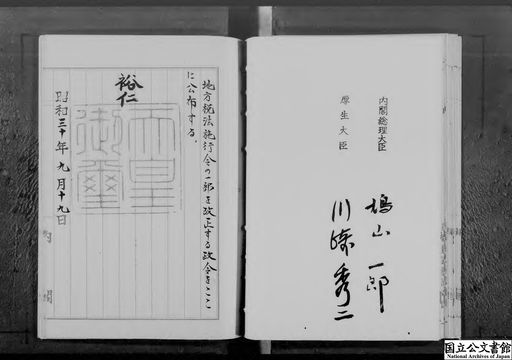 内閣総理大臣
鳩山一郎
厚生大臣
川崎秀二
地方税法施行令の一部を改正する政令をここ
に公布する。
裕仁
天皇
御璽
昭和三十年九月十九日
国立公文書館
National Archives of Japan